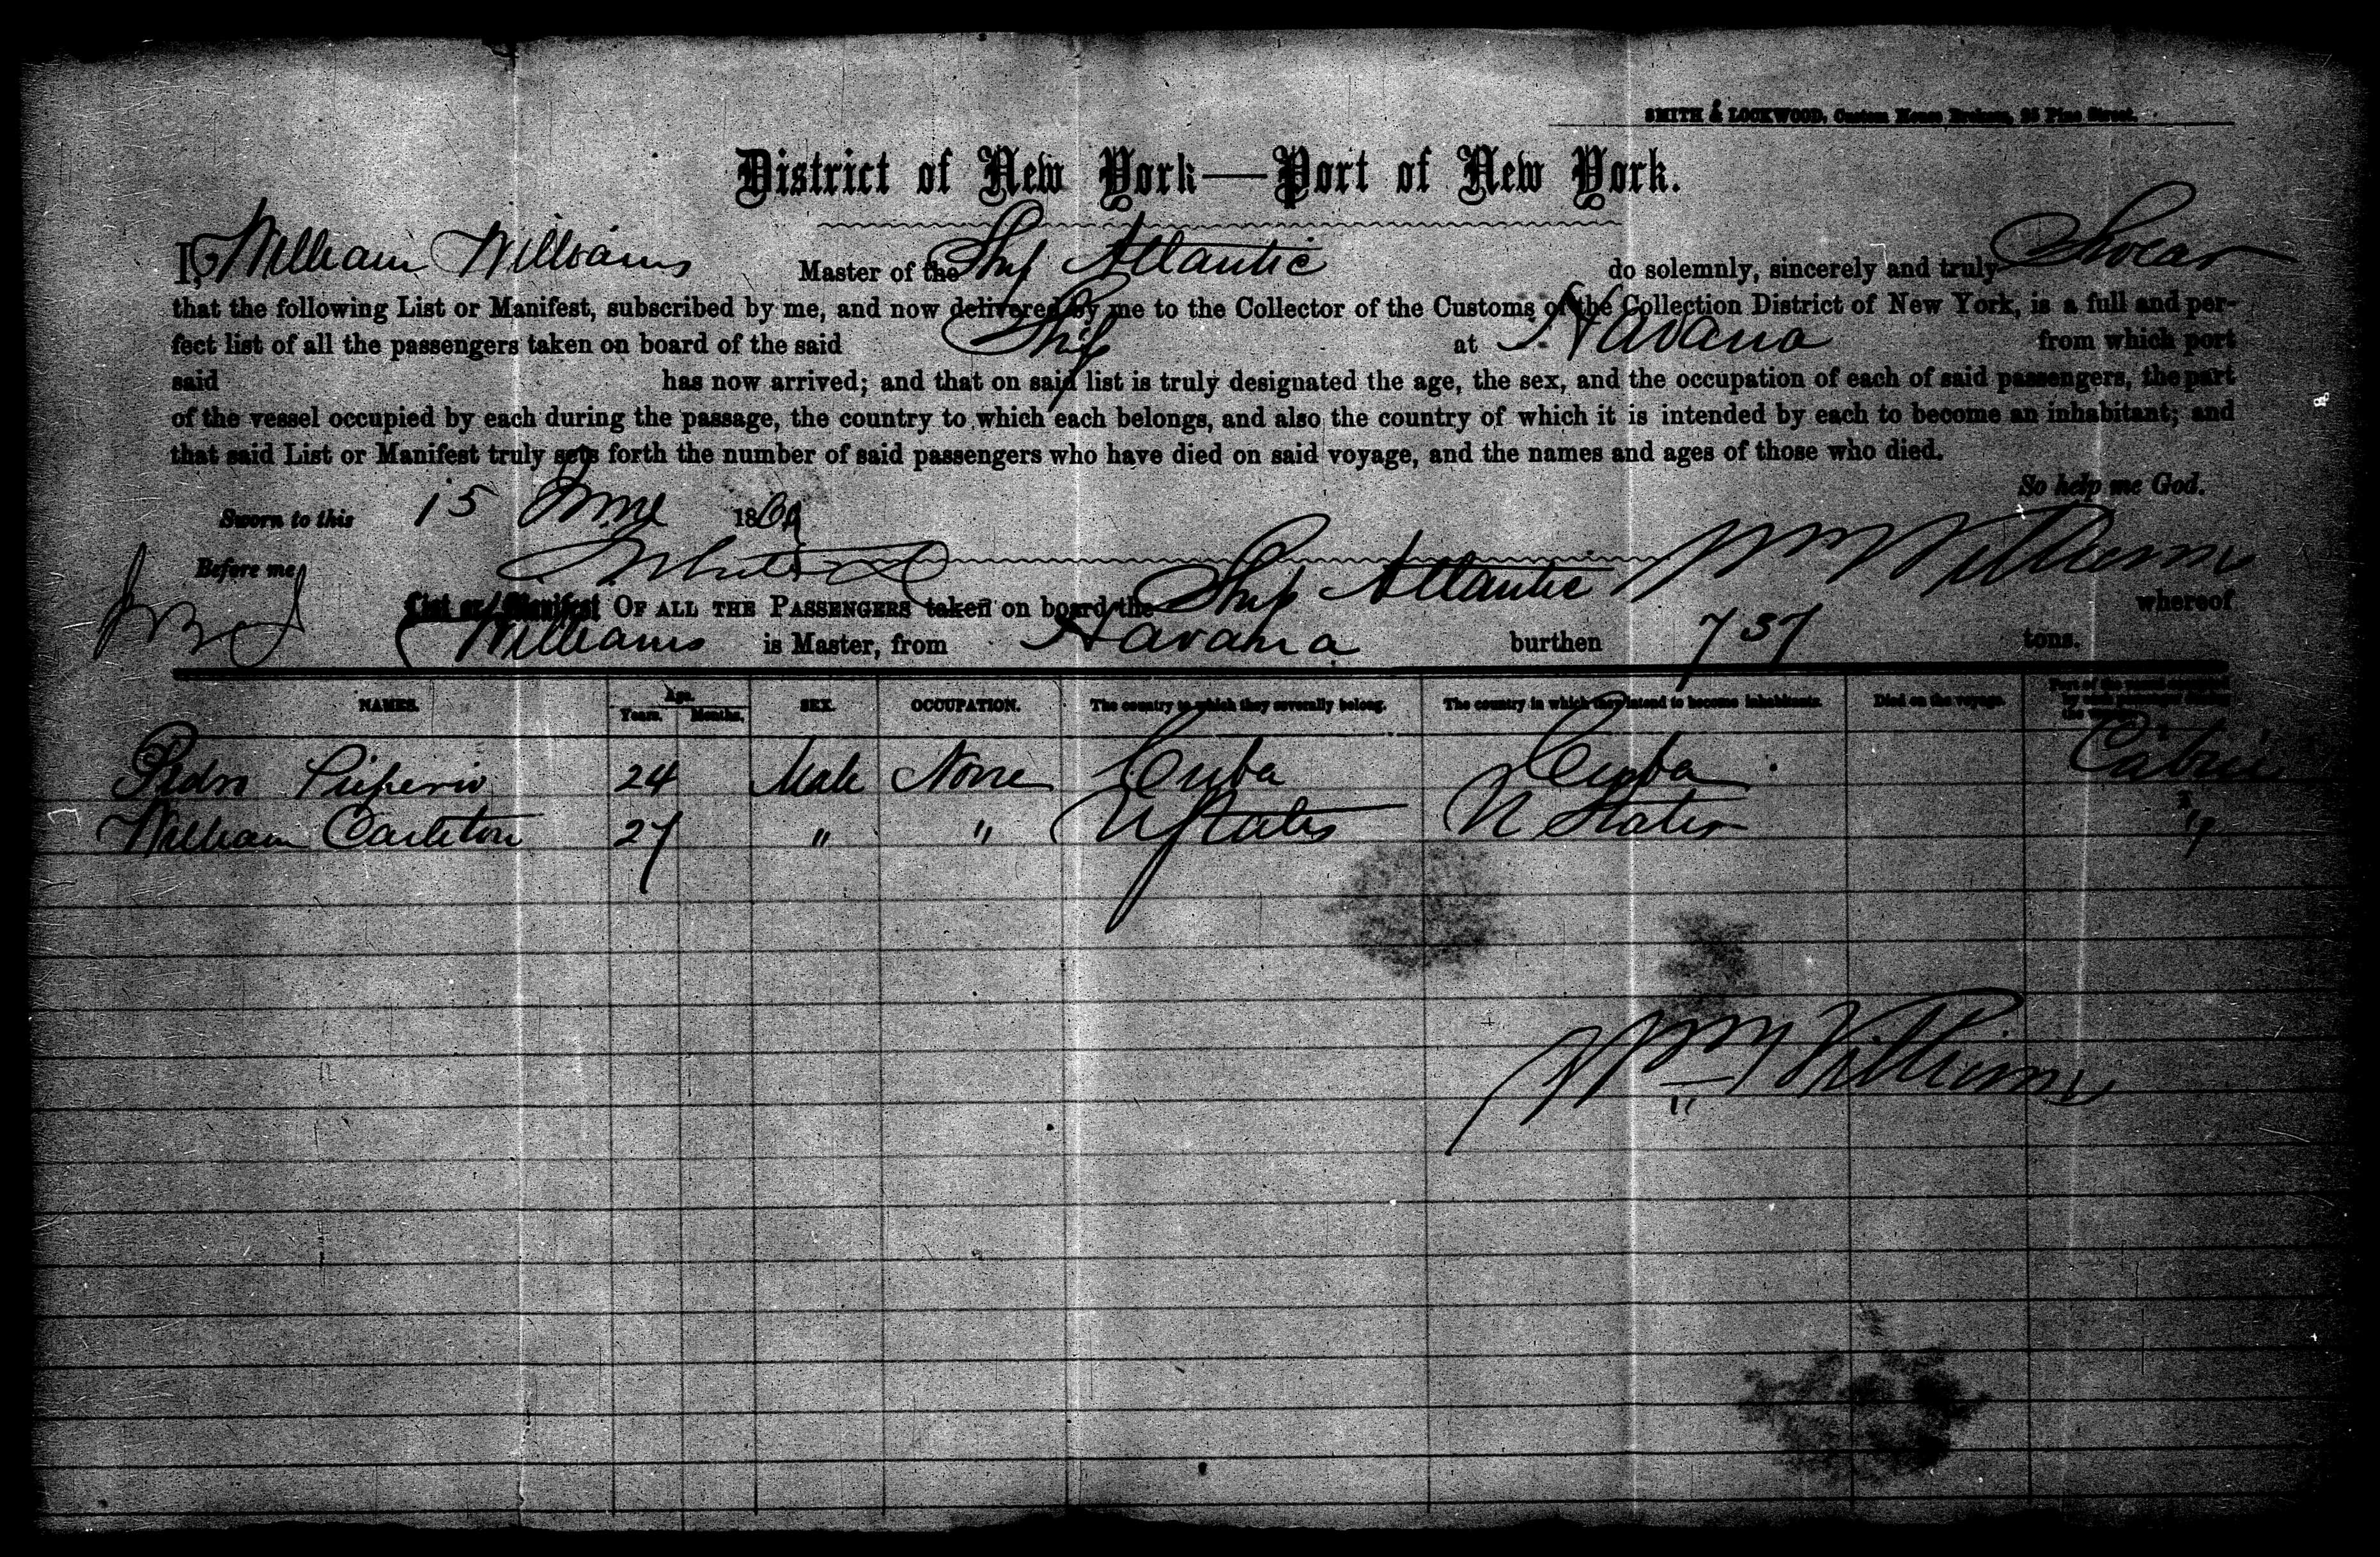 SMITH & LOCKWOOD, Custom House Brokers, 25 Pine Street.
District of New York—Port of New York.
I, William Williams Master of the Ship Atlantic do solemnly, sincerely and truly Swear
that the following List or Manifest, subscribed by me, and now delivered by me to the Collector of the Customs of the Collection District of New York, is a full and per-
fect list of all the passengers taken on board of the said Ship at Havana from which port
said has now arrived; and that on said list is truly designated the age, the sex, and the occupation of each of said passengers, the part
of the vessel occupied by each during the passage, the country to which each belongs, and also the country of which it is intended by each to become an inhabitant; and
that said List or Manifest truly sets forth the number of said passengers who have died on said voyage, and the names and ages of those who died.
So help me God.
Sworn to this 15 June 1860
Before me Wm Williams
List or Manifest OF ALL THE PASSENGERS taken on board the Ship Atlantic whereof
Williams is Master, from Havana burthen 737 tons.
NAMES. Age. Years. Months. SEX. OCCUPATION. The country to which they severally belong. The country in which they intend to become inhabitants. Died on the voyage. Part of the vessel occupied by each passenger during the voyage.
Pedro 24 Male None Cuba Cuba Cabin
William Carleton 27 " " U States U States "
Wm Williams